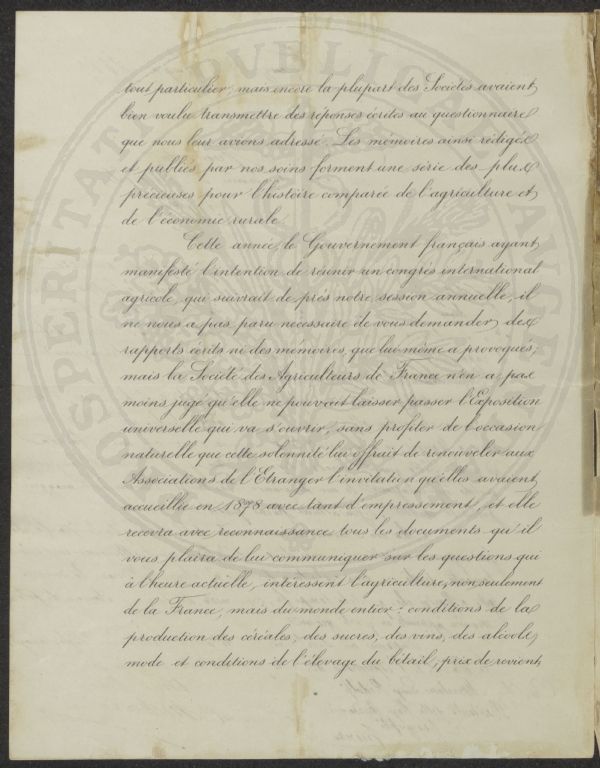 tout particulier, mais encore la plupart des Sociétés avaient
bien voulu transmettre des réponses écrites au questionnaire
que nous leur avions adressé. Les mémoires ainsi rédigés
et publiés par nos soins forment une série des plus
précieuses pour l'histoire comparée de l'agriculture et
de l'économie rurale.
Cette année, le Gouvernement français ayant
manifesté l'intention de réunir un congrès international
agricole, qui suivrait de près notre session annuelle, il
ne nous a pas paru nécessaire de vous demander des
rapports écrits ni des mémoires, que lui-même a provoqués;
mais la Société des Agriculteurs de France n'en a pas
moins jugé qu'elle ne pouvait laisser passer l'Exposition
universelle qui va s'ouvrir, sans profiter de l'occasion
naturelle que cette solennité lui offrait de renouveler aux
Associations de l'Etranger l'invitation qu'elles avaient
accueillie en 1878 avec tant d'empressement, et elle
recevra avec reconnaissance tous les documents qu'il
vous plaira de lui communiquer sur les questions qui
à l'heure actuelle, intéressent l'agriculture, non seulement
de la France, mais du monde entier: conditions de la
production des céréales, des sucres, des vins, des alcools,
mode et conditions de l'élevage du bétail, prix de revient,